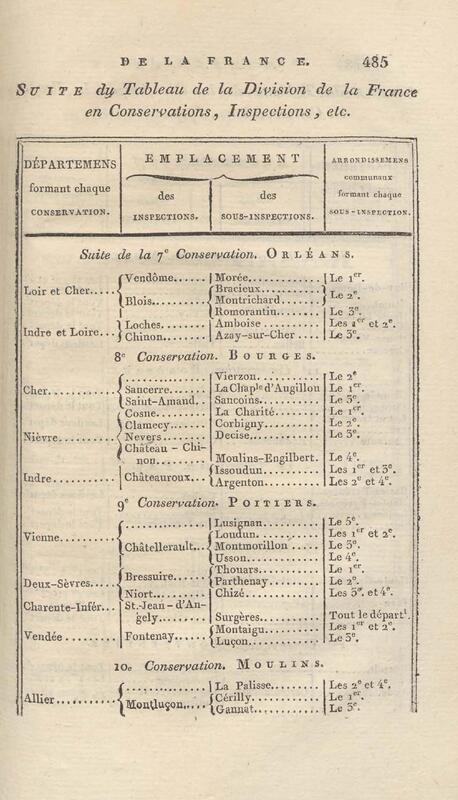 DE LA FRANCE. 485
SUITE du Tableau de la Division de la France
en Conservations, Inspections, etc.
DÉPARTEMENS
formant chaque
CONSERVATION.
EMPLACEMENT
des
INSPECTIONS.
des
SOUS-INSPECTIONS.
ARRONDISSEMENS
communaux
formant chaque
SOUS-INSPECTION.
Suite de la 7e Conservation. ORLÉANS.
Loir et Cher..... Vendôme...... Morée............ Le 1er.
Blois.......... Bracieux.......... Montrichard........ Le 2e.
Romorantin........ Le 3e.
Indre et Loire... Loches........ Amboise.......... Les 1er et 2e.
Chinon........ Azay-sur-Cher.... Le 3e.
8e Conservation. BOURGES.
Cher............ .............. Vierzon.......... Le 2e
Sancerre...... La Chaple d'Angillon Le 1er.
Saint-Amand.. Sancoins.......... Le 3e.
Nièvre.......... Cosne......... La Charité........ Le 1er.
Clamecy....... Corbigny.......... Le 2e.
Nevers........ Decise............ Le 3e.
Château-Chi-
non......... Moulins-Engilbert. Le 4e.
Indre........... Châteauroux... Issoudun.......... Les 1er et 3e.
Argenton.......... Les 2e et 4e.
9e Conservation. POITIERS.
Vienne.......... .............. Lusignan.......... Le 5e.
Châtellerault... Loudun............ Les 1er et 2e.
Montmorillon...... Le 3e.
Usson............. Le 4e.
Deux-Sèvres..... Bressuire..... Thouars.......... Le 1er.
Parthenay........ Le 2e.
Niort......... Chizé............ Les 3e. et 4e.
Charente-Infér... St.-Jean-d'An-
gely........ Surgères.......... Tout le départt.
Vendée.......... Fontenay...... Montaigu.......... Les 1er et 2e.
Luçon............ Le 3e.
10e Conservation. MOULINS.
Allier........... .............. La Palisse........ Les 2e et 4e.
Montluçon..... Cérilly........... Le 1er.
Gannat............ Le 3e.